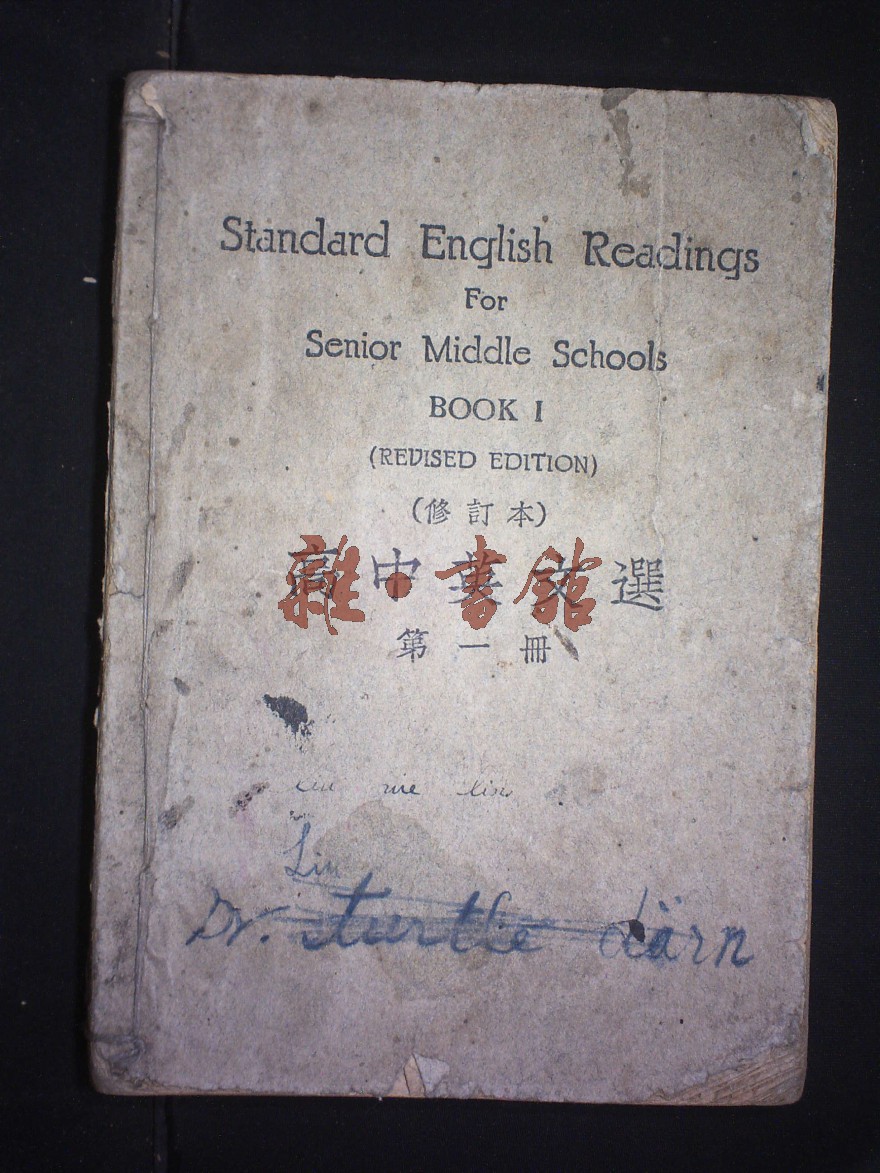 Standard English Readings
For
Senior Middle Schools
BOOK I
(REVISED EDITION)
(修訂本)
高中英文選
雜·書館
第一冊
Liu
Dr. turtle därn